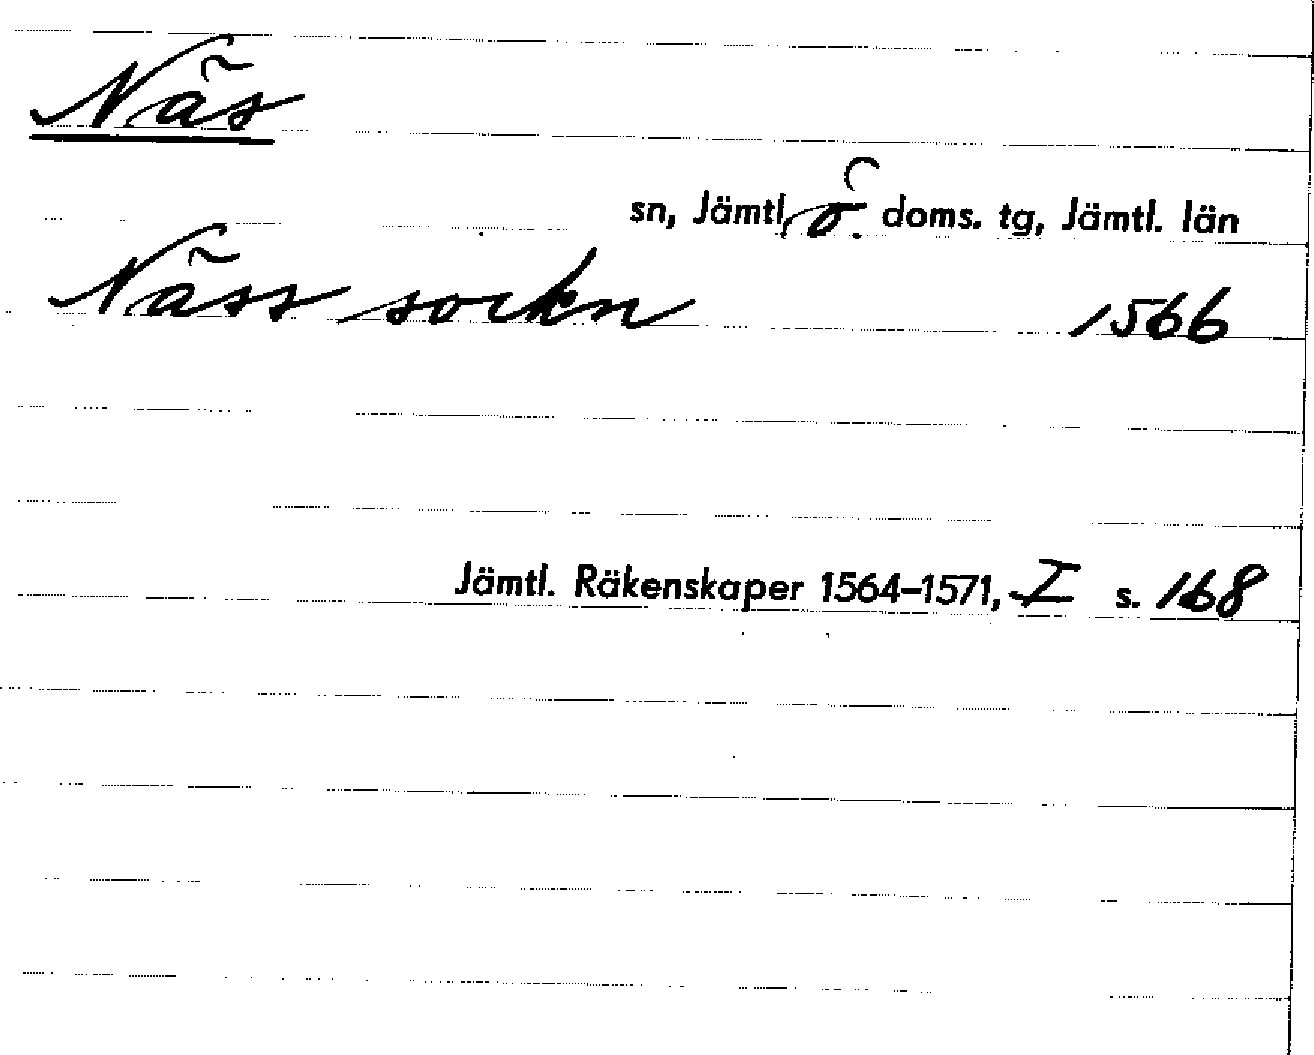 Näs
sn, Jämtl. ö. doms. tg, Jämtl. län
Näss sockn 1566
Jämtl. Räkenskaper 1564–1571, I s. 168